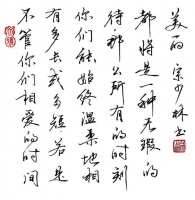 不管你们相爱的时间
有多长或多短若是
你们能始终温柔地相
待那么所有的时刻
都将是一种无瑕的
美丽 宗少林书